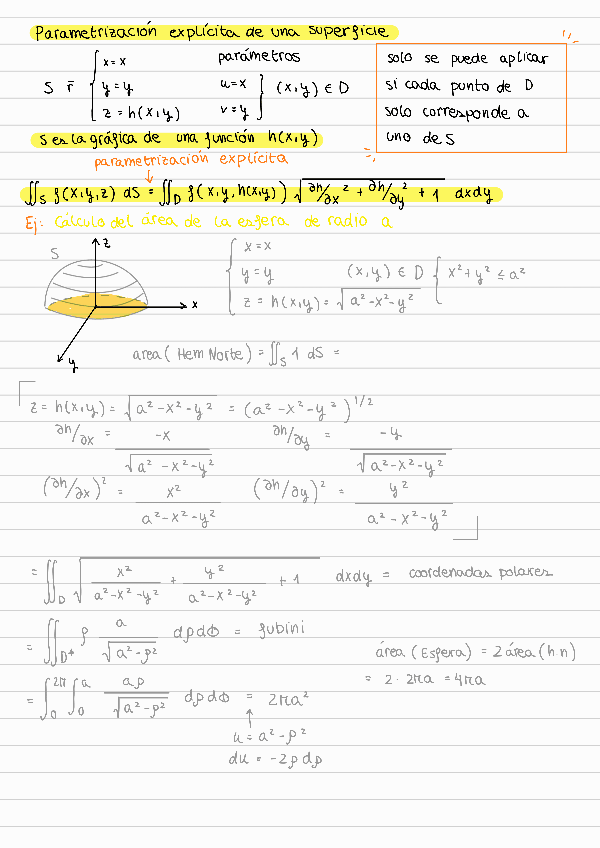 Parametrización explícita de una superficie
x = x parámetros solo se puede aplicar
S r̄ { y = y u = x } (x,y) ∈ D si cada punto de D
z = h(x,y) v = y solo corresponde a
uno de S
S es la gráfica de una función h(x,y)
parametrización explícita
∬_S f(x,y,z) dS = ∬_D f(x,y,h(x,y)) √(∂h/∂x² + ∂h/∂y² + 1) dxdy
Ej: Cálculo del área de la esfera de radio a
S z x y
x = x
y = y (x,y) ∈ D { x² + y² ≤ a²
z = h(x,y) = √(a² - x² - y²)
area (Hem Norte) = ∬_S 1 dS =
z = h(x,y) = √(a² - x² - y²) = (a² - x² - y²)^1/2
∂h/∂x = -x / √(a² - x² - y²) ∂h/∂y = -y / √(a² - x² - y²)
(∂h/∂x)² = x² / (a² - x² - y²) (∂h/∂y)² = y² / (a² - x² - y²)
= ∬_D √(x² / (a² - x² - y²) + y² / (a² - x² - y²) + 1) dxdy = coordenadas polares
= ∬_D* ρ a / √(a² - ρ²) dρdΦ = fubini
área (Esfera) = 2 área (h.n)
= 2 · 2πa = 4πa
= ∫_0^2π ∫_0^a aρ / √(a² - ρ²) dρdΦ = 2πa²
u = a² - ρ²
du = -2ρdρ